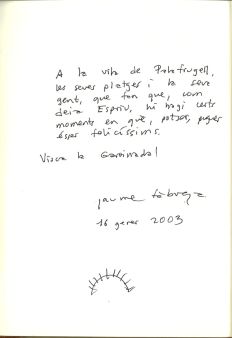 A la vila de Palafrugell,
les seves platges i la seva
gent, que fan que, com
deia Espriu, hi hagi certs
moments en què, potser, pugui
ésser feliciíssims.
Visca la Garoinada!
jaume fàbrega
16 gener 2003